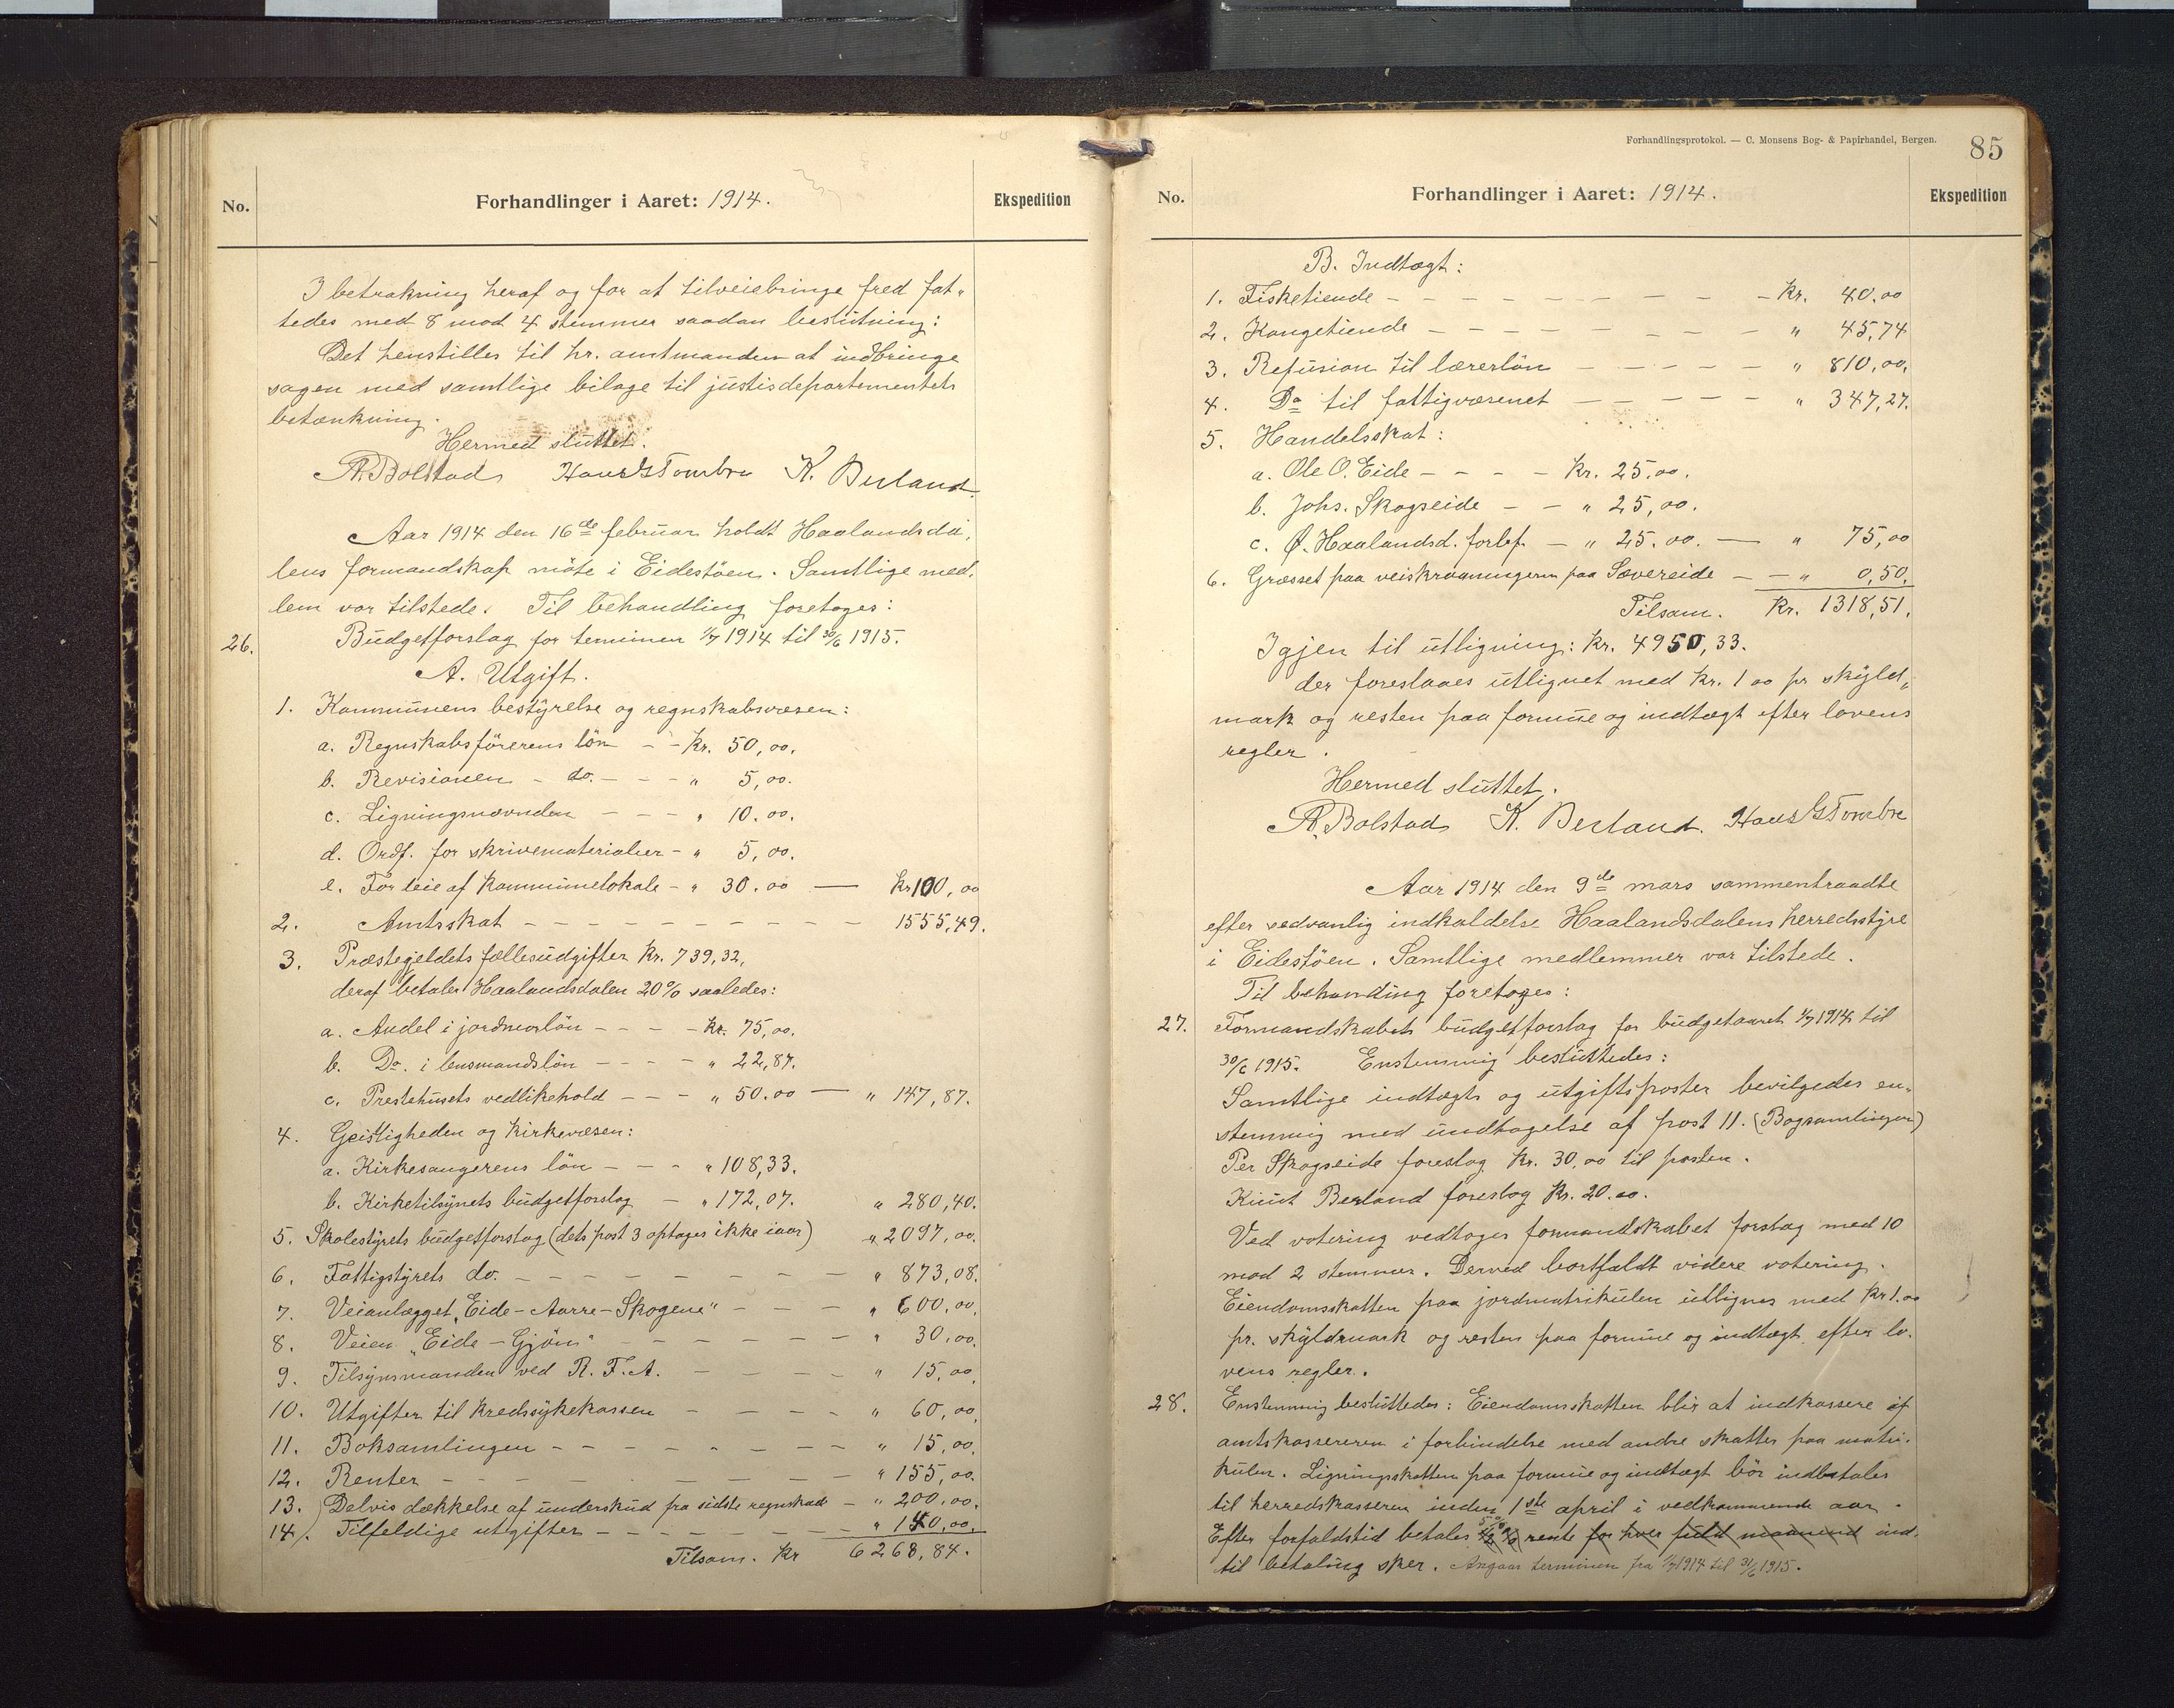 No.
Forhandlinger i Aaret: 1914.
Ekspedition
I betrakning heraf og for at tilveiebringe fred fat-
tedes med 8 mod 4 stemmer saadan beslutning:
Det henstilles til hr. amtmanden at indbringe
sagen med samtlige bilage til justisdepartementets
betænkning.
Hermed sluttet.
A. Bolstad Hans G Tombre K. Berland
Aar 1914 den 16de februar holdt Haalandsda-
lens formandskap møte i Eidestøen. Samtlige med-
lem var tilstede. Til behandling foretoges:
26. Budgetforslag for terminen 1/7 1914 til 30/6 1915.
A. Utgift.
1. Kommunens bestyrelse og regnskabsvæsen:
a. Regnskabsførerens løn - - Kr. 50,00.
b. Revisionen - do. - - - " 5,00.
c. Ligningsnævnden - - - " 10.00.
d. Ordf. for skrivematerialier - " 5,00.
e. For leie af kommunelokale - " 30.00 — Kr 100,00
2. Amtsskat - - - - - - - - - - 1555,49.
3. Præstegjeldets fællesudgifter Kr. 739,32,
deraf betaler Haalandsdalen 20% saaledes:
a. Andel i jordmorløn - - - - Kr. 75,00.
b. Do. i lensmandsløn - - - - " 22,87.
c. Prestehusets vedlikehold - - - " 50.00 — " 147,87.
4. Geistligheden og kirkevæsen:
a. Kirkesangerens løn - - - " 108,33.
b. Kirketilsynets budgetforslag - " 172,07. " 280,40.
5. Skolestyrets budgetforslag (dets post 3 optages ikke iaar) " 2097,00.
6. Fattigstyrets do. - - - - - - - " 873,08.
7. Veianlægget "Eide-Aarre-Skogene" - - - " 600,00.
8. Veien "Eide-Gjøn" - - - - - - " 30,00.
9. Tilsynsmanden ved R. F. A. - - - - " 15,00.
10. Utgifter til kredssykekassen - - - - " 60,00.
11. Boksamlingen - - - - - - - - " 15,00.
12. Renter - - - - - - - - - " 155,00.
13. Delvis dækkelse af underskud fra sidste regnskab - " 200,00.
14. Tilfeldige utgifter - - - - - - - " 140,00.
Tilsam. Kr 6268,84.
Forhandlingsprotokol. — C. Monsens Bog- & Papirhandel, Bergen.
85
No.
Forhandlinger i Aaret: 1914.
Ekspedition
B. Indtægt:
1. Fisketiende - - - - - - - - - - Kr. 40.00
2. Kongetiende - - - - - - - - - " 45,74
3. Refusion til lærerløn - - - - - " 810,00.
4. Do til fattigvæsenet - - - - - " 347,27.
5. Handelsskat:
a. Ole O. Eide - - - - Kr. 25.00.
b. Johs. Skogseide - - " 25,00.
c. Ø. Haalandsd. forbf. - " 25.00. — " 75,00
6. Græsset paa veiskraaningern paa Sævereide - - " 0,50.
Tilsam. Kr. 1318,51.
Igjen til utligning: Kr. 4950,33.
der foreslaaes utlignet med Kr. 1 00 pr skyld-
mark og resten paa formue og indtægt efter lovens
regler.
Hermed sluttet.
A. Bolstad K. Berland. Hans G Tombre
Aar 1914 den 9de mars sammentraadte
efter sedvanlig indkaldelse Haalandsdalens herredsstyre
i Eidestøen. Samtlige medlemmer var tilstede.
Til behanding foretoges:
27. Formandskabets budgetforslag for budgetaaret 1/7 1914 til
30/6 1915. Enstemmig besluttedes:
Samtlige indtægts og utgiftsposter bevilgedes en-
stemmig med undtagelse af post 11. (Bogsamlingen)
Per Skogseide foreslog Kr. 30,00 til posten.
Knut Berland foreslog Kr. 20.00.
Ved votering vedtoges formandskabet forslag med 10
mod 2 stemmer. Derved bortfaldt videre votering.
Eiendomsskatten paa jordmatrikulen utlignes med Kr 1.00
pr. skyldmark og resten paa formue og indtægt efter lo-
vens regler.
28. Enstemmig besluttedes: Eiendomsskatten blir at indkassere af
amtskassereren i forbindelse med andre skatter paa matri-
kulen. Ligningsskatten paa formue og indtægt bør indbetales
til herredskasseren inden 1ste april i vedkommende aar.
Efter forfaldstid betales 5% 1/2 % rente for hver fuld maaned ind-
til betaling sker. Angaar terminen fra 1/7 1914 til 31/6 1915.